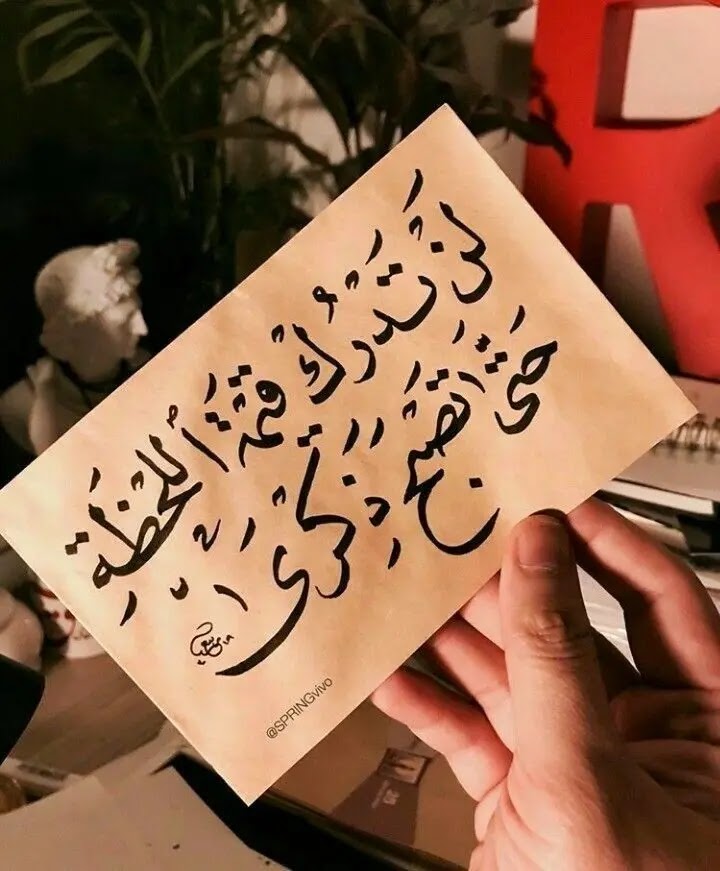 لَن تُدْرِكَ قِيمَةَ اَللَّحْظَةِ
حَتَّى تُصْبِحَ ذِكْرَى
@SPRINGvivo
R